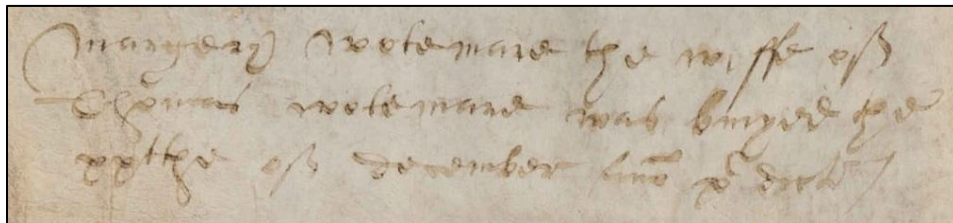 Margery Wotemare the wiffe off
Thomas Wotemare was buryed the
xxthe off december Anno p dict